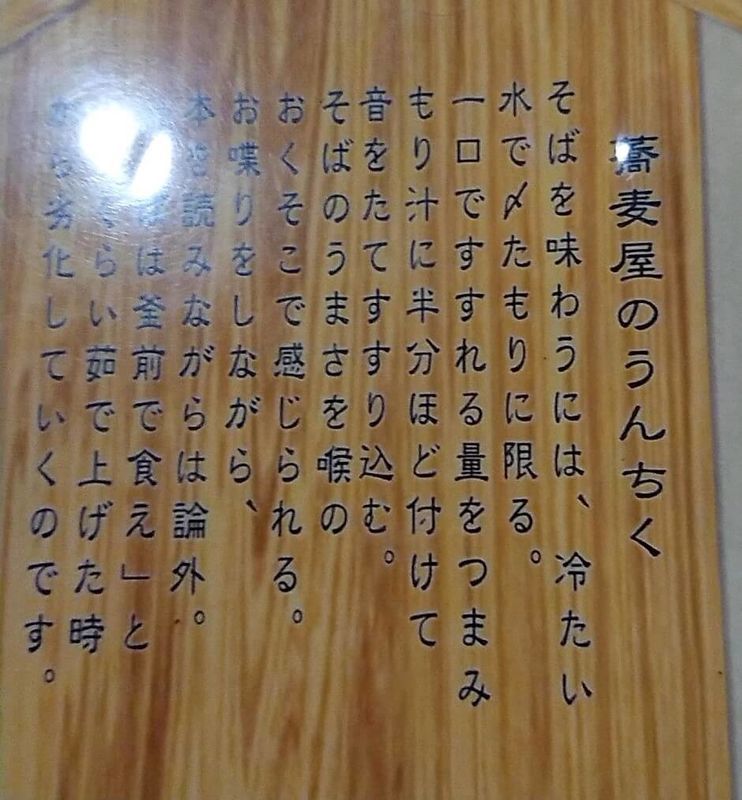 蕎麦屋のうんちく
そばを味わうには、冷たい
水で〆たもりに限る。
一口ですすれる量をつまみ
もり汁に半分ほど付けて
音をたてすすり込む。
そばのうまさを喉の
おくそこで感じられる。
お喋りをしながら、
本を読みながらは論外。
は釜前で食え」と
らい茹で上げた時
から劣化していくのです。